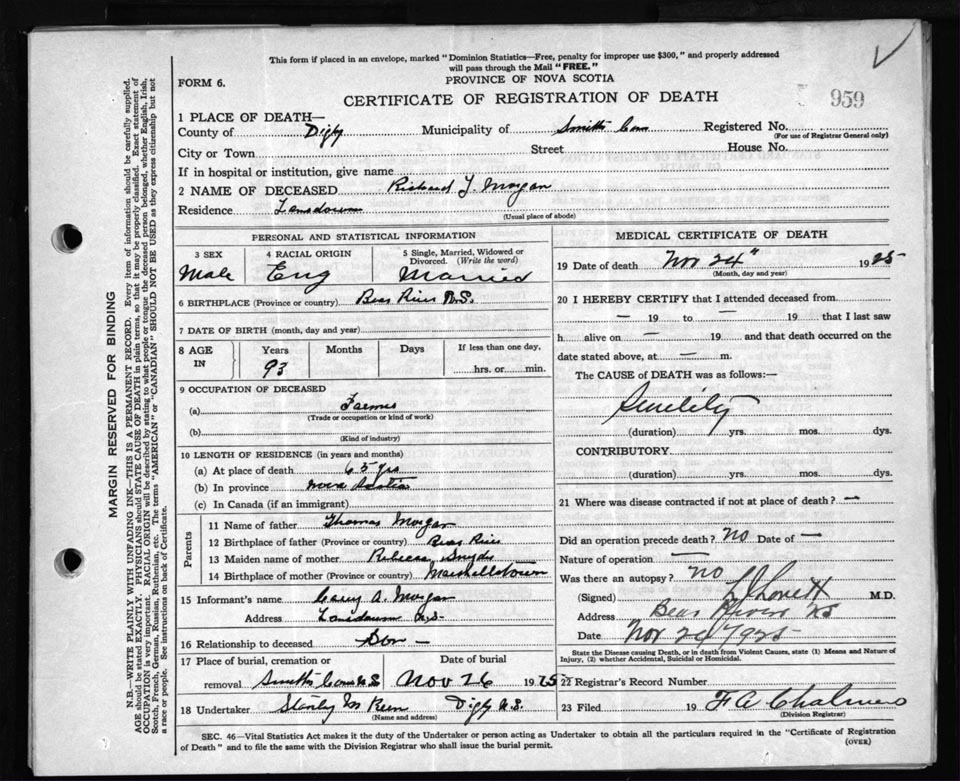 This form if placed in an envelope, marked "Dominion Statistics—Free, penalty for improper use $300," and properly addressed
will pass through the Mail "FREE."
FORM 6.
PROVINCE OF NOVA SCOTIA
CERTIFICATE OF REGISTRATION OF DEATH
959
1 PLACE OF DEATH—
County of Digby Municipality of Smiths Cove Registered No.
(For use of Registrar General only)
City or Town Street House No.
If in hospital or institution, give name
2 NAME OF DECEASED Richard Morgan
Residence Lansdowne
(Usual place of abode)
PERSONAL AND STATISTICAL INFORMATION
3 SEX 4 RACIAL ORIGIN 5 Single, Married, Widowed or
Divorced. (Write the word)
Male Eng Married
6 BIRTHPLACE (Province or country) Bear River N.S.
7 DATE OF BIRTH (month, day and year)
8 AGE IN Years Months Days If less than one day,
93 hrs. or min.
9 OCCUPATION OF DECEASED
(a) Farmer
(Trade or occupation or kind of work)
(b)
(Kind of industry)
10 LENGTH OF RESIDENCE (in years and months)
(a) At place of death 65 yrs
(b) In province Nova Scotia
(c) In Canada (if an immigrant)
Parents
11 Name of father Thomas Morgan
12 Birthplace of father (Province or country) Bear River
13 Maiden name of mother Rebecca Snyder
14 Birthplace of mother (Province or country) Marshalltown
15 Informant's name A. Morgan
Address Lansdowne N.S.
16 Relationship to deceased Son —
17 Place of burial, cremation or Date of burial
removal Smiths Cove N.S. Nov 26 1925
18 Undertaker Stanley Digby N.S.
(Name and address)
MEDICAL CERTIFICATE OF DEATH
19 Date of death Nov 24" 1925
(Month, day and year)
20 I HEREBY CERTIFY that I attended deceased from
— 19 to — 19 that I last saw
h alive on — 19 and that death occurred on the
date stated above, at — m.
The CAUSE of DEATH was as follows:—
Senility
(duration) yrs. mos. dys.
CONTRIBUTORY
(duration) yrs. mos. dys.
21 Where was disease contracted if not at place of death? —
Did an operation precede death? No Date of —
Nature of operation —
Was there an autopsy? No
(Signed) Lovett M.D.
Address Bear River NS
Date Nov 1925
State the Disease causing Death, or in death from Violent Causes, state (1) Means and Nature of
Injury, (2) whether Accidental, Suicidal or Homicidal.
22 Registrar's Record Number
23 Filed 19 F A Chalmers
(Division Registrar)
SEC. 46—Vital Statistics Act makes it the duty of the Undertaker or person acting as Undertaker to obtain all the particulars required in the "Certificate of Registration
of Death" and to file the same with the Division Registrar who shall issue the burial permit.
(OVER)
MARGIN RESERVED FOR BINDING
N.B.—WRITE PLAINLY WITH UNFADING INK—THIS IS A PERMANENT RECORD. Every item of information should be carefully supplied.
AGE should be stated EXACTLY. PHYSICIANS should STATE CAUSE OF DEATH in plain terms, so that it may be properly classified. Exact statement of
OCCUPATION is very important. RACIAL ORIGIN will be described by stating to what people or tongue the deceased person belonged, whether English, Irish,
Scotch, French, German, Russian, Ruthenian, etc. The terms "AMERICAN" or "CANADIAN" SHOULD NOT BE USED as they express citizenship but not
a race or people. See instructions on back of Certificate.